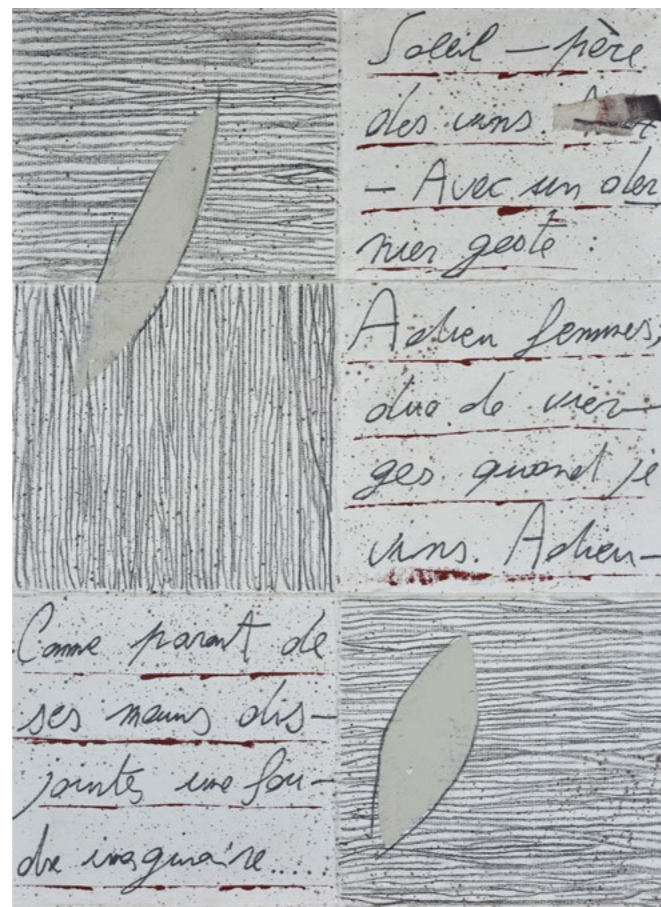 Soleil — père
des vins.
— Avec un der
nier geste :
Adieu femmes,
duo de vier—
ges quand je
vins. Adieu—
Comme parant de
ses mains dis—
jointes une fou—
dre imaginaire.....